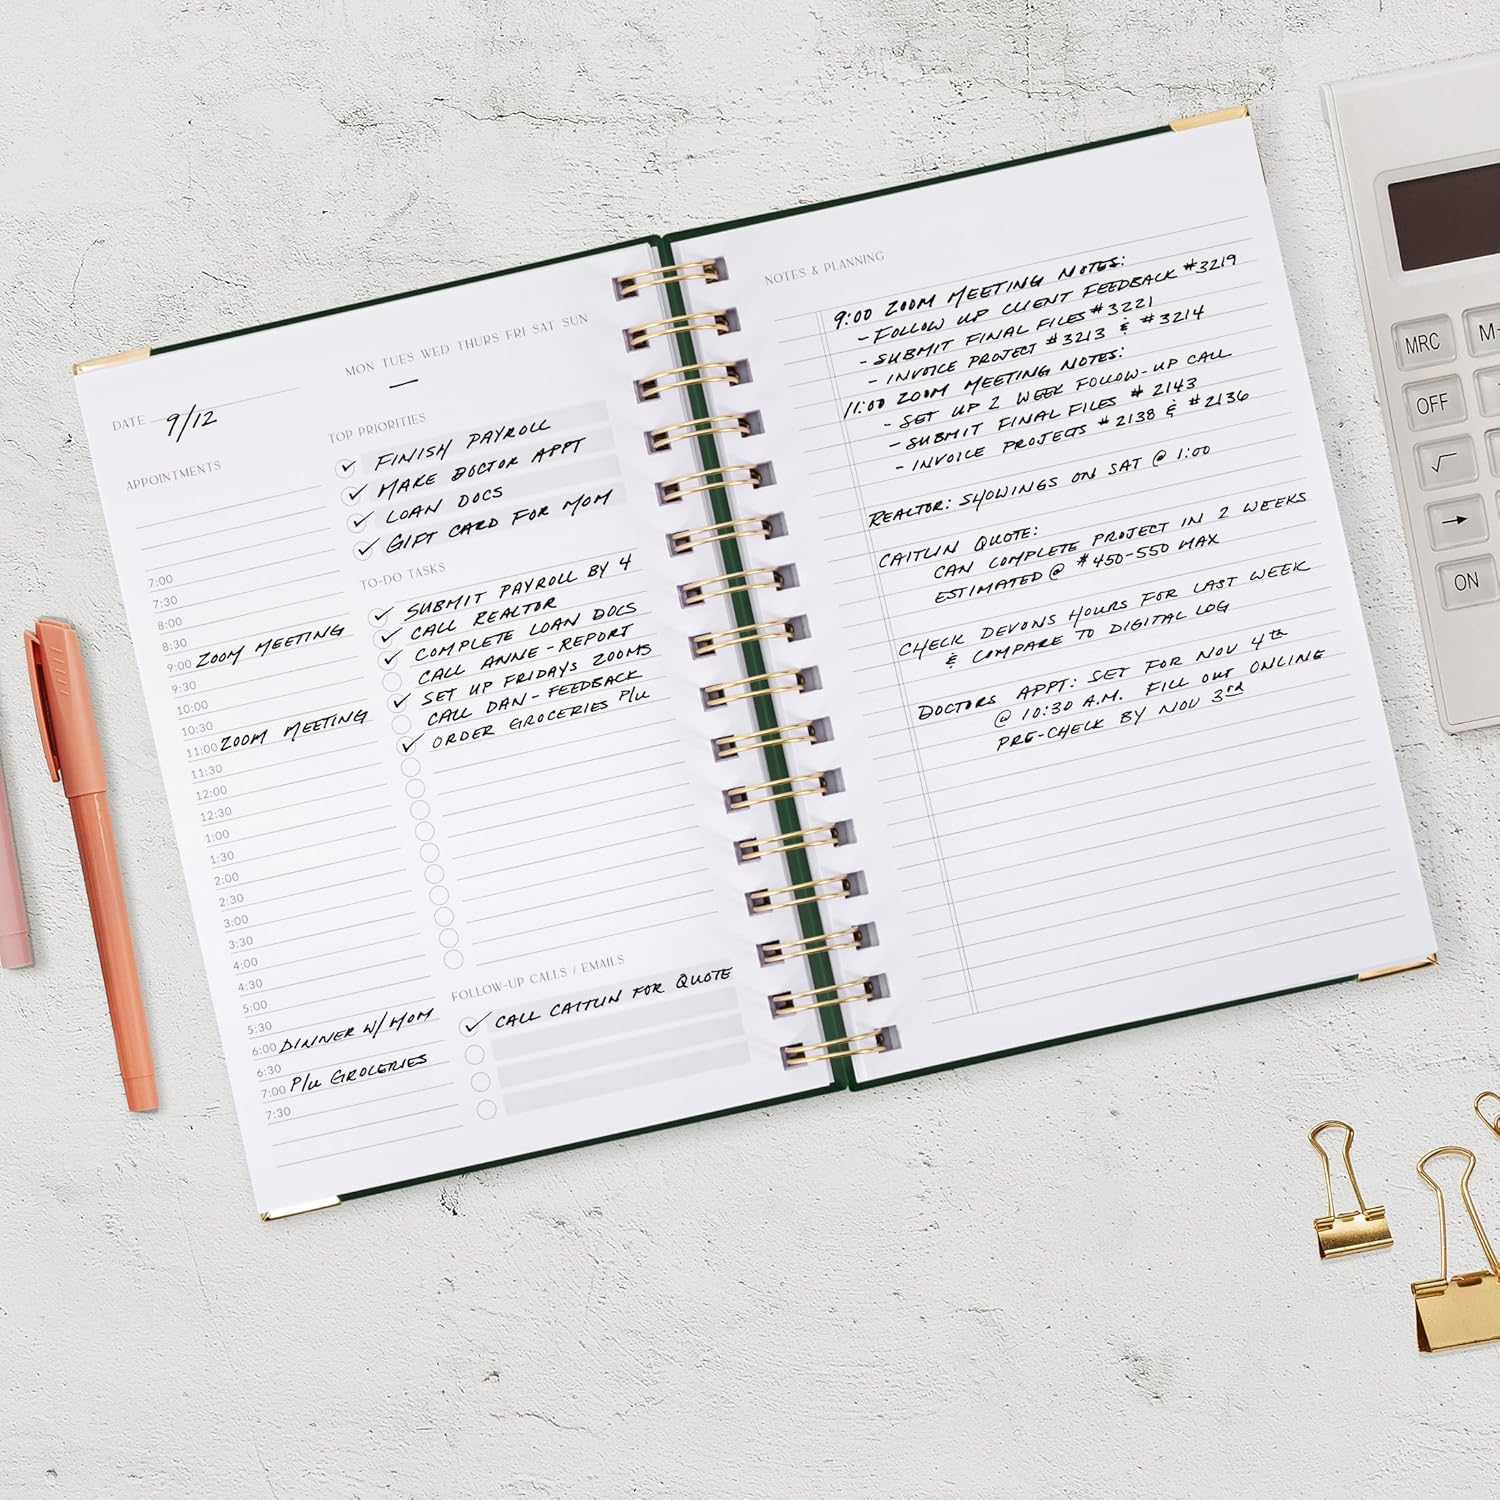 DATE 9/12
MON TUES WED THURS FRI SAT SUN
APPOINTMENTS
7:00
7:30
8:00
8:30
9:00 ZOOM MEETING
9:30
10:00
10:30
11:00 ZOOM MEETING
11:30
12:00
12:30
1:00
1:30
2:00
2:30
3:00
3:30
4:00
4:30
5:00
5:30
6:00 DINNER W/ MOM
6:30
7:00 P/U GROCERIES
7:30
TOP PRIORITIES
✓ FINISH PAYROLL
✓ MAKE DOCTOR APPT
✓ LOAN DOCS
✓ GIFT CARD FOR MOM
TO-DO TASKS
✓ SUBMIT PAYROLL BY 4
✓ CALL REALTOR
✓ COMPLETE LOAN DOCS
CALL ANNE - REPORT
✓ SET UP FRIDAYS ZOOMS
CALL DAN - FEEDBACK
✓ ORDER GROCERIES P/U
FOLLOW-UP CALLS / EMAILS
✓ CALL CAITLIN FOR QUOTE
NOTES & PLANNING
9:00 ZOOM MEETING NOTES:
- FOLLOW UP CLIENT FEEDBACK #3219
- SUBMIT FINAL FILES #3221
- INVOICE PROJECT #3213 & #3214
11:00 ZOOM MEETING NOTES:
- SET UP 2 WEEK FOLLOW-UP CALL
- SUBMIT FINAL FILES # 2143
- INVOICE PROJECTS #2138 & #2136
REALTOR: SHOWINGS ON SAT @ 1:00
CAITLIN QUOTE:
CAN COMPLETE PROJECT IN 2 WEEKS
ESTIMATED @ $450-550 MAX
CHECK DEVONS HOURS FOR LAST WEEK
& COMPARE TO DIGITAL LOG
DOCTORS APPT: SET FOR NOV 4th
@ 10:30 A.M. FILL OUT ONLINE
PRE-CHECK BY NOV 3rd
MRC
M-
OFF
√
→
ON